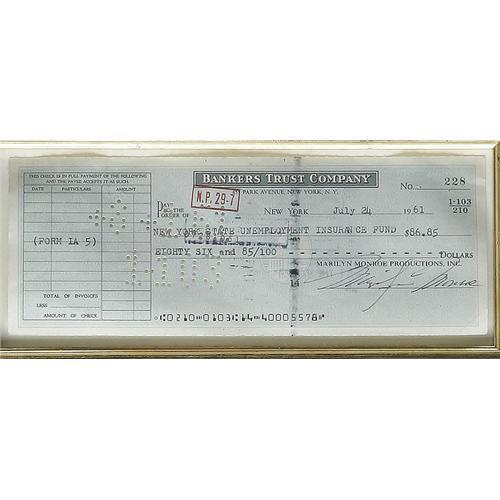 THIS CHECK IS IN FULL PAYMENT OF THE FOLLOWING
AND THE PAYEE ACCEPTS IT AS SUCH.
DATE PARTICULARS AMOUNT
(FORM IA 5)
TOTAL OF INVOICES
LESS
AMOUNT OF CHECK
BANKERS TRUST COMPANY
PARK AVENUE, NEW YORK, N. Y.
No. 228
N.P. 29-7
1-103
210
PAY
TO THE
ORDER OF
NEW YORK July 24 1961
NEW YORK STATE UNEMPLOYMENT INSURANCE FUND $86.85
EIGHTY SIX and 85/100 DOLLARS
MARILYN MONROE PRODUCTIONS, INC.
Marilyn Monroe
0210 0103 14 40005578